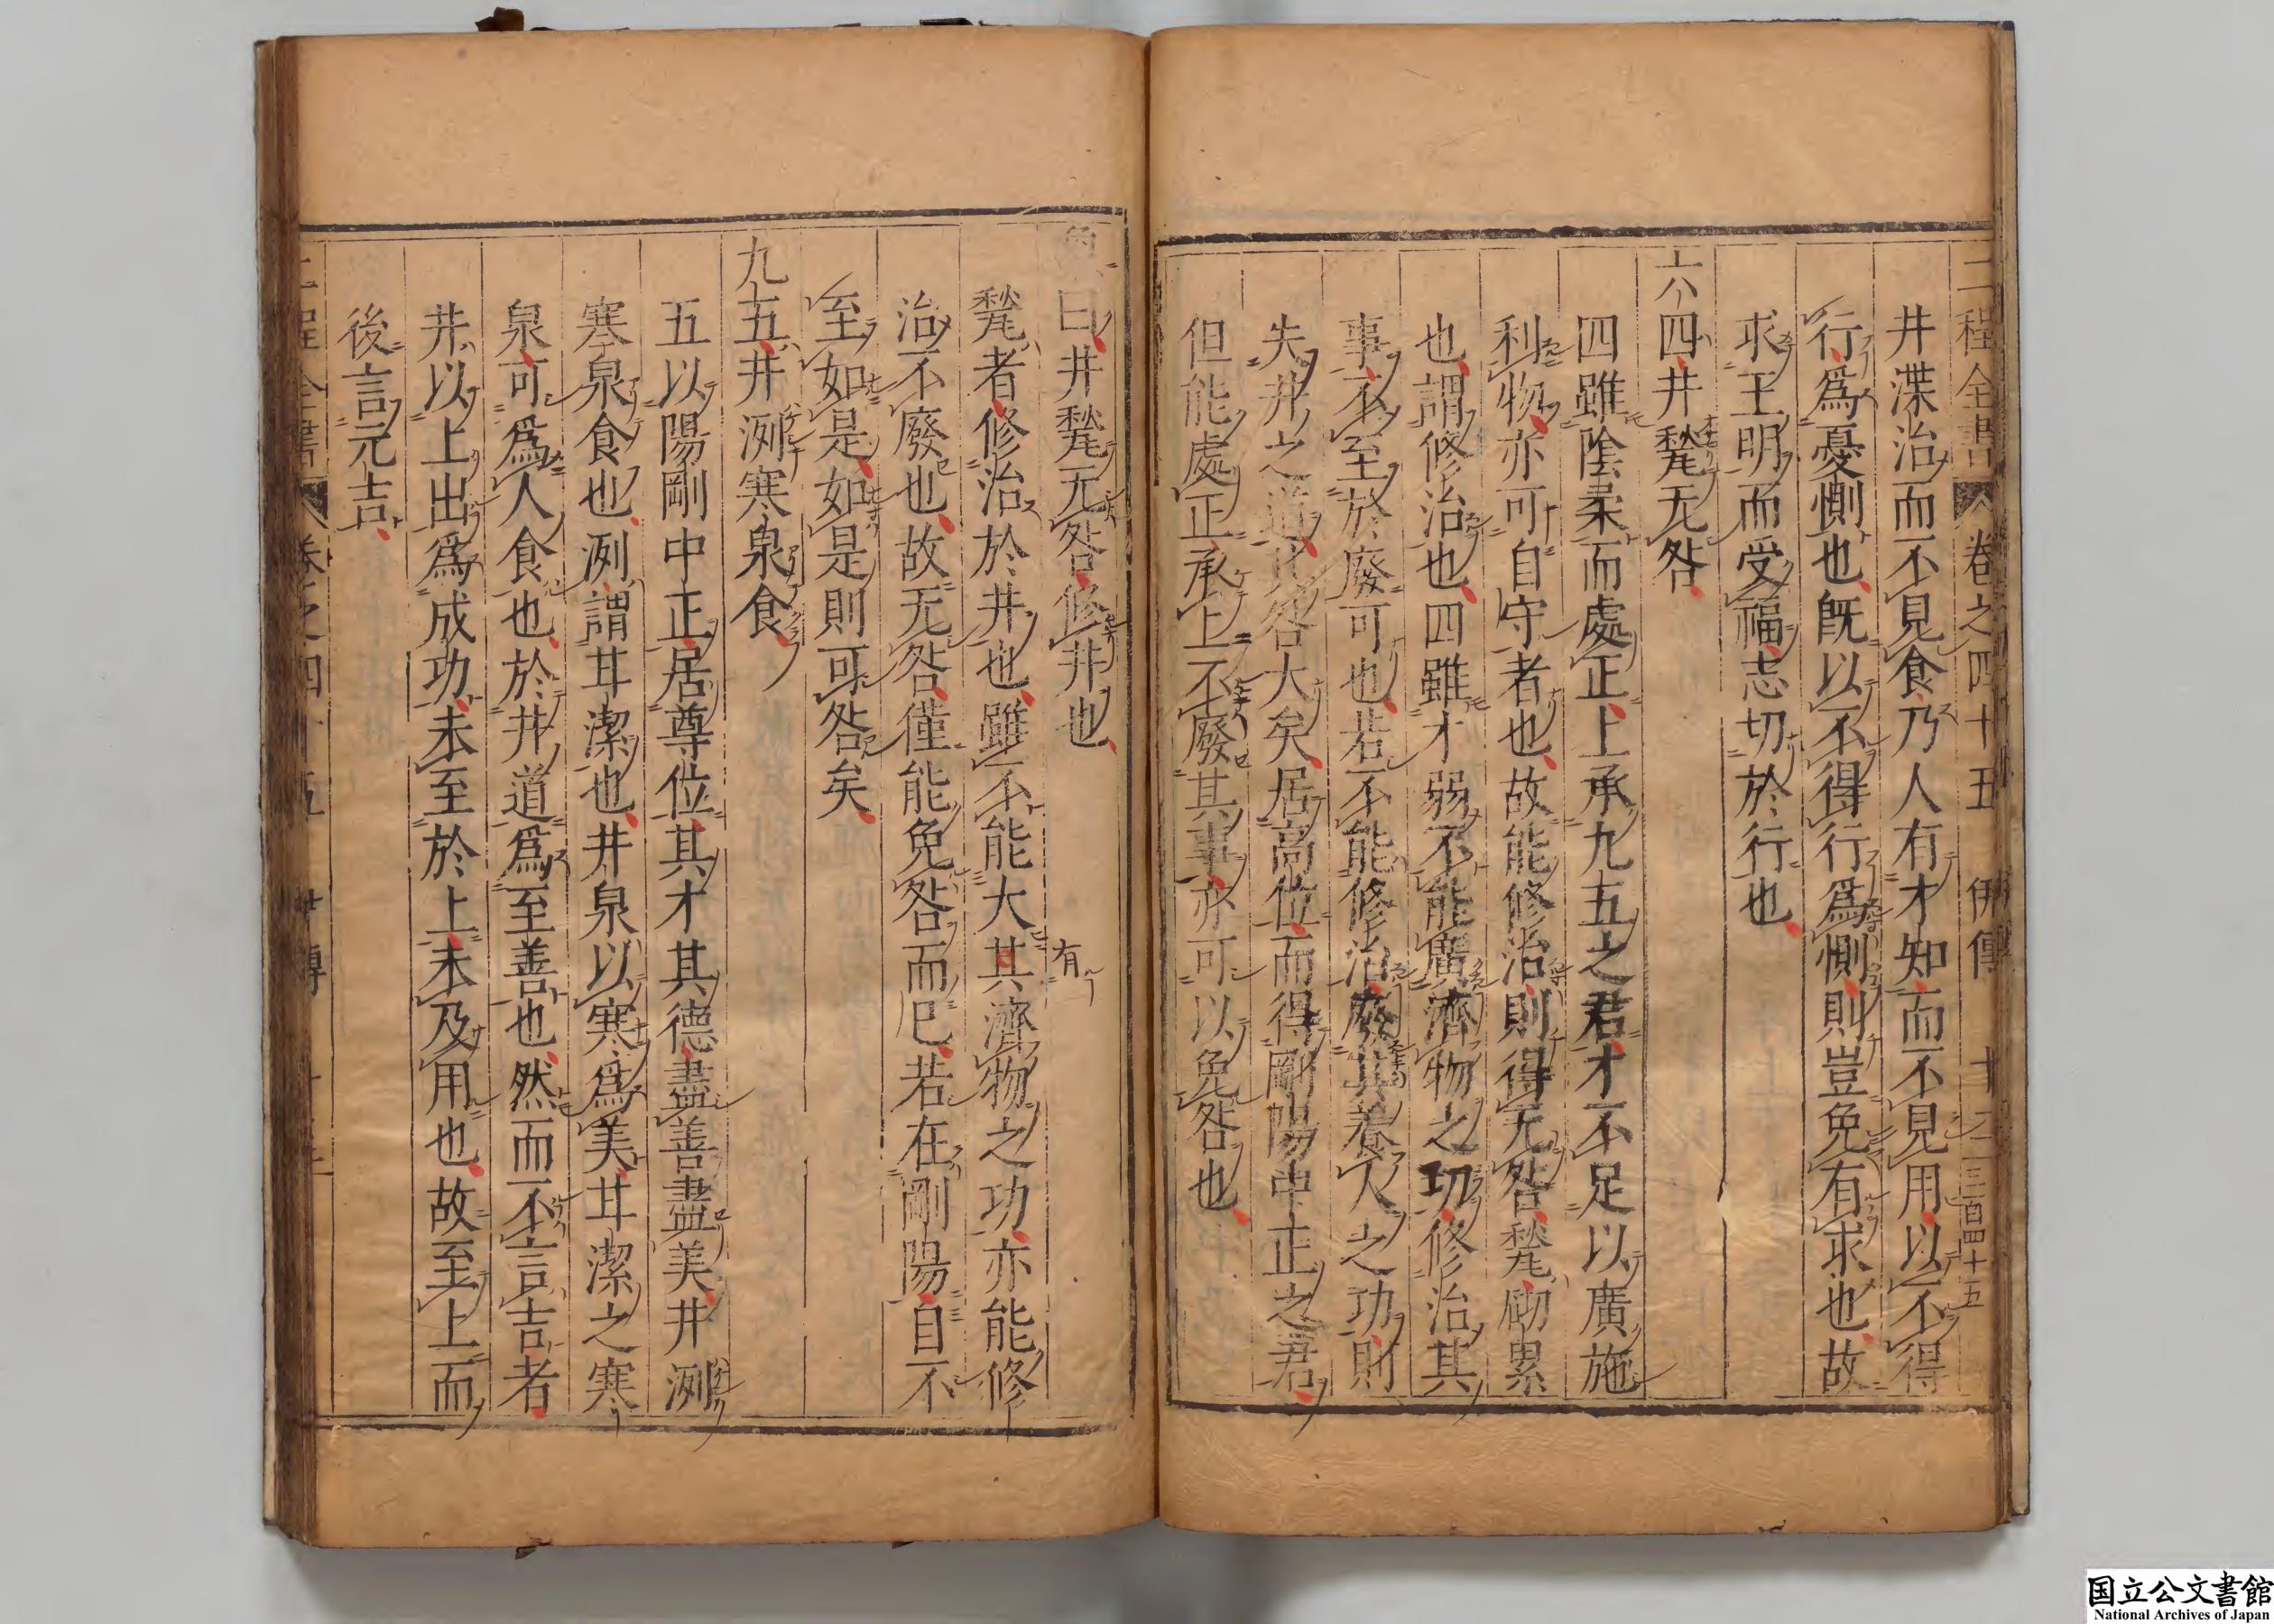 二程全書 卷之四十五 伊傳 三百四十五
井渫治而不見食乃人有才知而不見用以不得
行爲憂惻也旣以不得行爲惻則豈免有求也故
求王明而受福志切於行也
六四井甃无咎
四雖陰柔而處正上承九五之君才不足以廣施
利物亦可自守者也故能修治則得无咎甃砌累
也謂修治也四雖才弱不能廣濟物之功修治其
事不至於廢可也若不能修治廢其養人之功則
失井之道其咎大矣居高位而得剛陽中正之君
但能處正承上不廢其事亦可以免咎也
象曰井甃无咎修井也
有
甃者修治於井也雖不能大其濟物之功亦能修
治不廢也故无咎僅能免咎而已若在剛陽自不
至如是如是則可咎矣
九五井洌寒泉食
五以陽剛中正居尊位其才其德盡善盡美井洌
寒泉食也洌謂甘潔也井泉以寒爲美甘潔之寒
泉可爲人食也於井道爲至善也然而不言吉者
井以上出爲成功未至於上未及用也故至上而
後言元吉
国立公文書館
National Archives of Japan